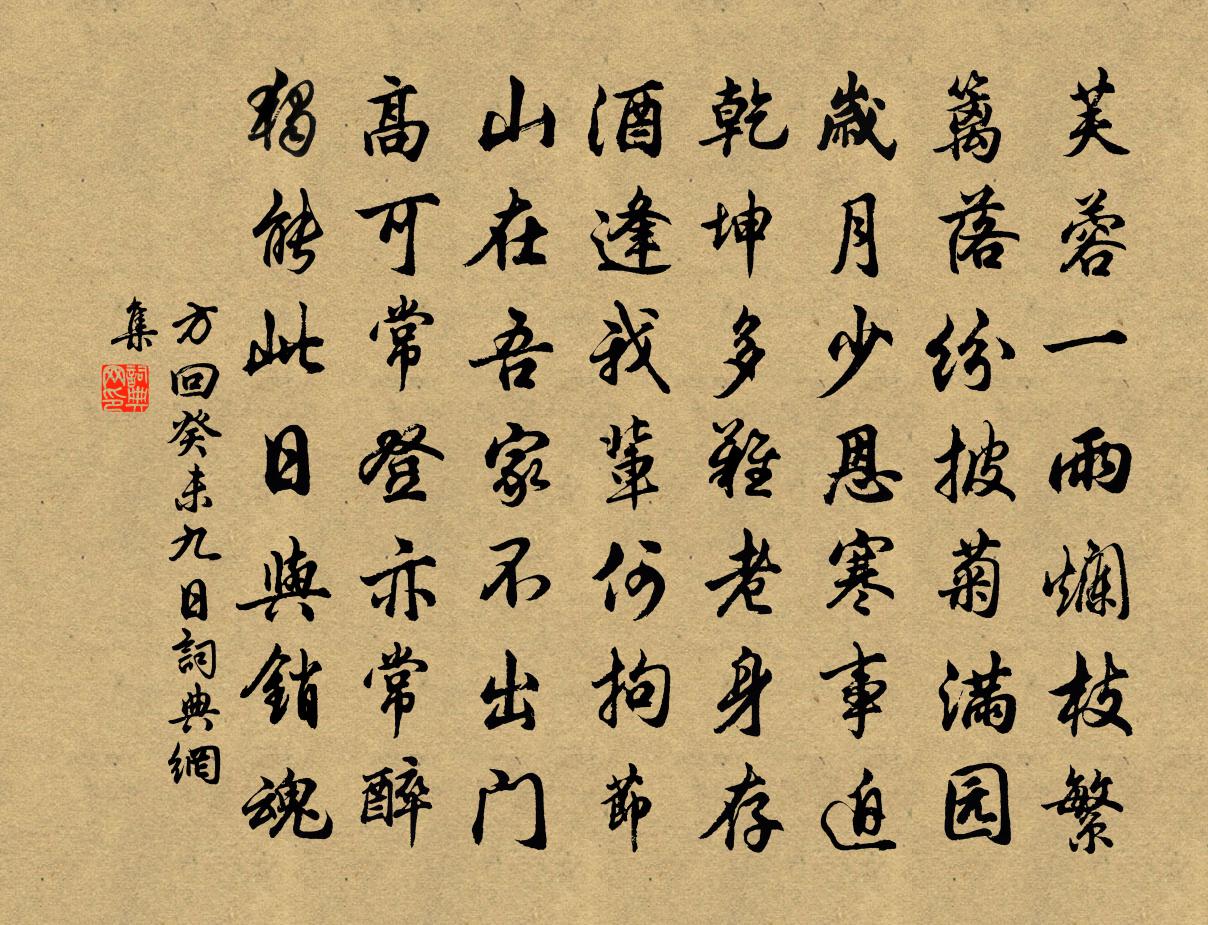 芙蓉一雨爛枝繁
篱落紛披菊滿园
歲月少恩寒事迫
乾坤多難老身存
酒逢我輩何拘節
山在吾家不出門
高可常登亦常醉
獨能此日與銷魂
方回癸未九日詞典網
集
詞典网印